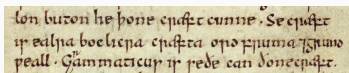 lon buton he þone cræft cunne. Se cræft
is ealra boclicra cræfta ordfruma ⁊ grund
weall. Grammaticus is se ðe can ðone cræft.